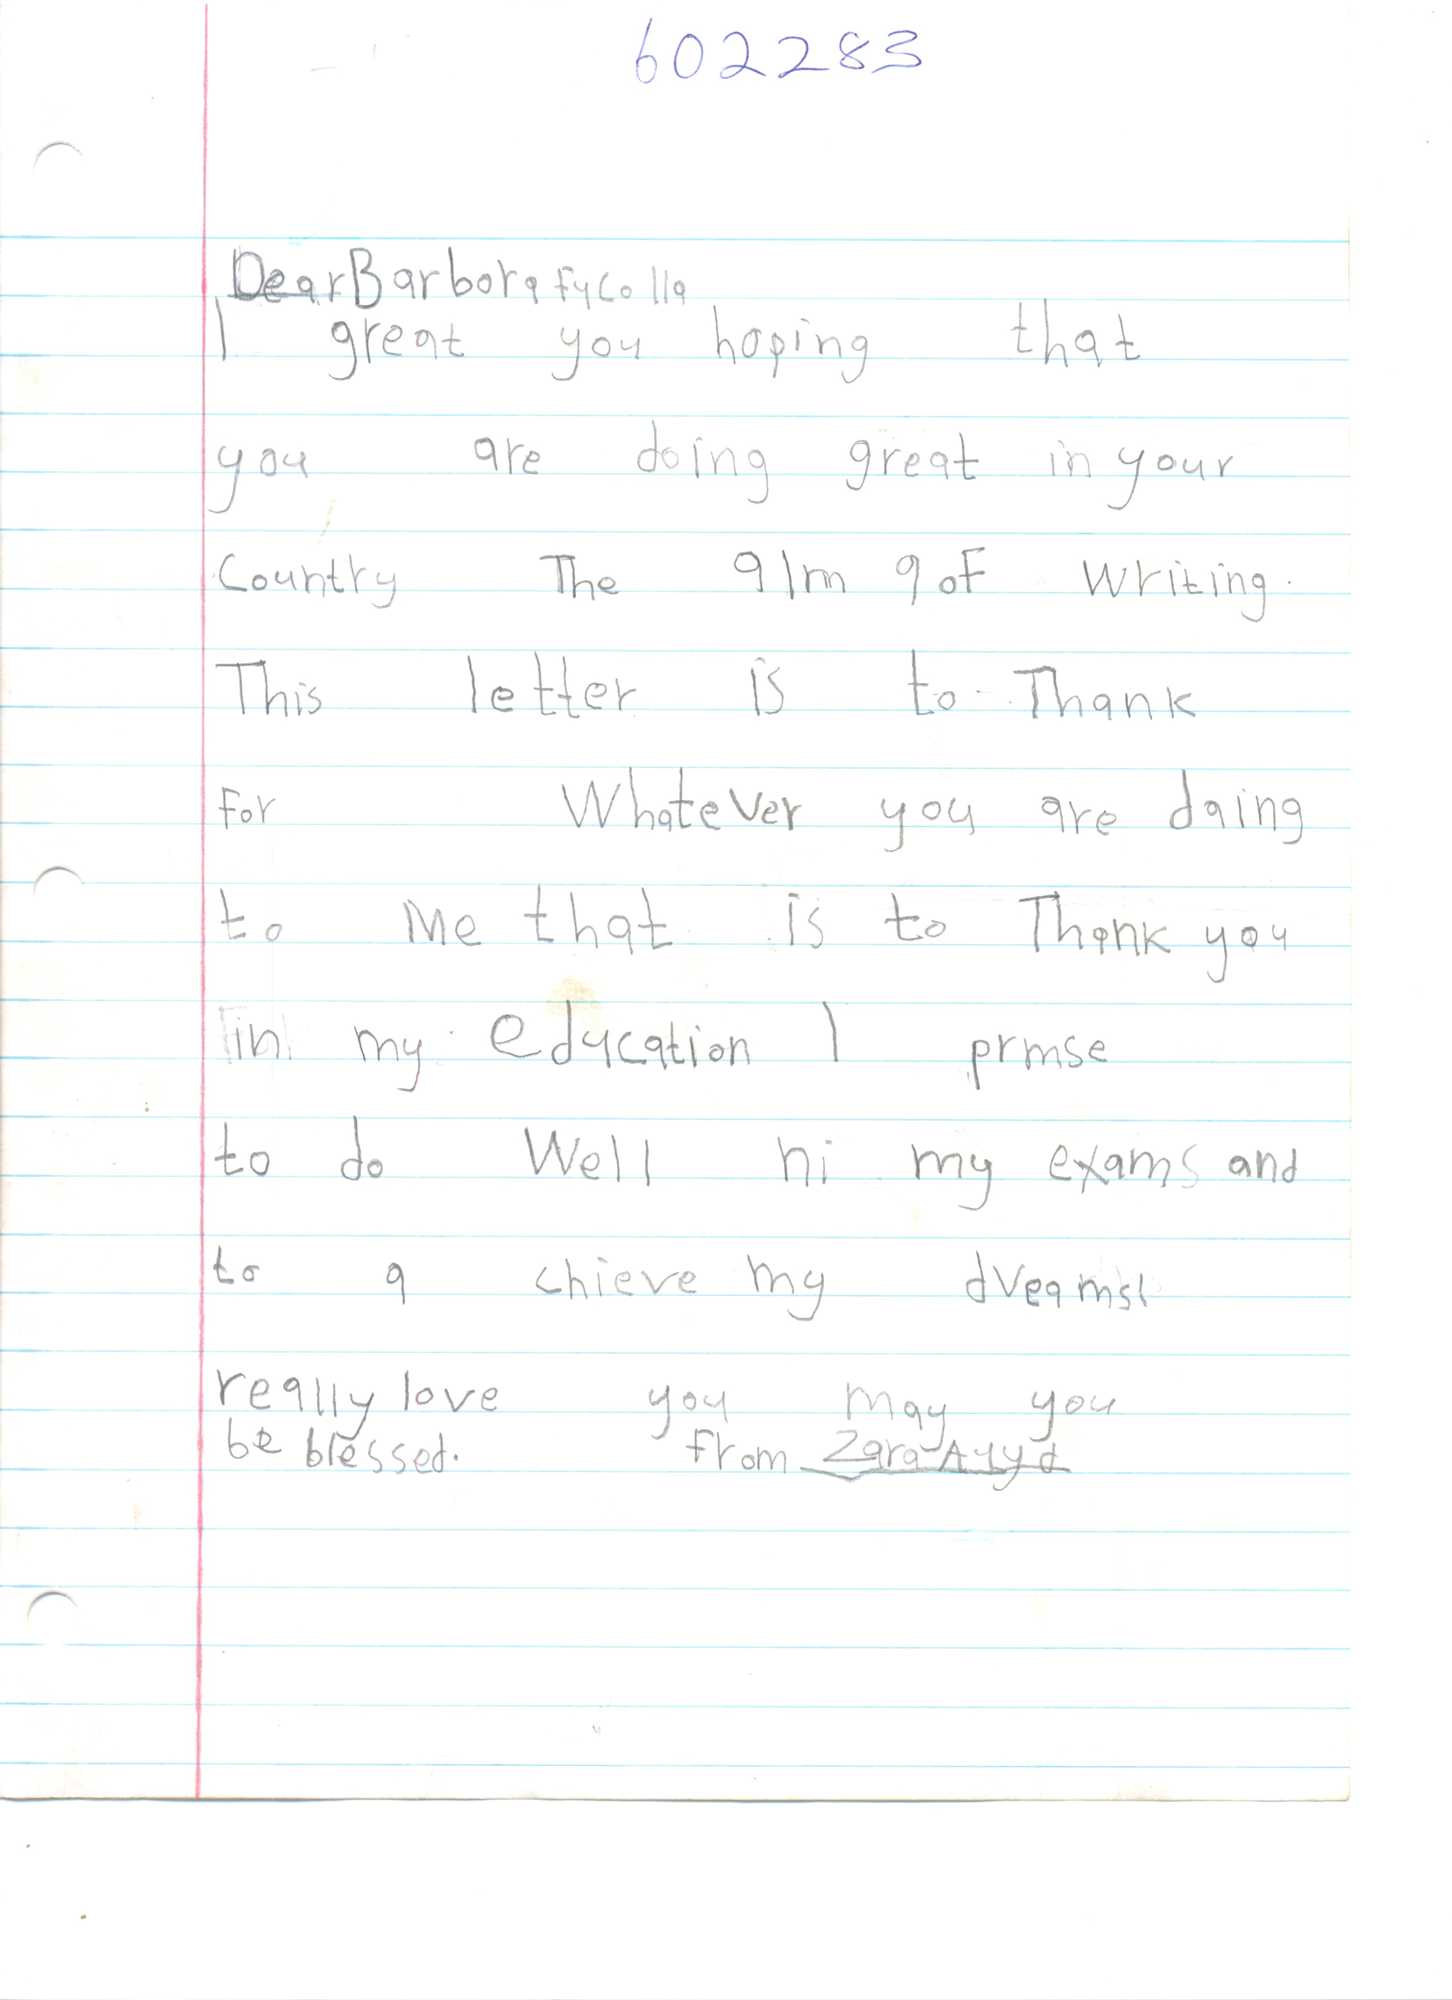 602283
Dear Barbora Fycolla
I great you hoping that
you are doing great in your
Country The aim a of writing
This letter is to Thank
For Whatever you are daing
to Me that is to Thank you
in my education I prmse
to do Well ni my exams and
to a chieve my dreams I
really love you may you
be blessed. From Zara